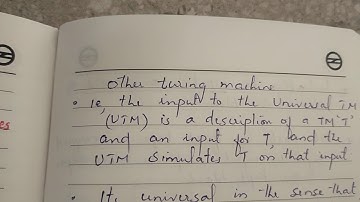 other turing machine
• ie, the input to the Universal TM
(UTM) is a description of a TM 'T'
and an input for T, and the
UTM simulates T on that input
• It, universal in the sense that
es